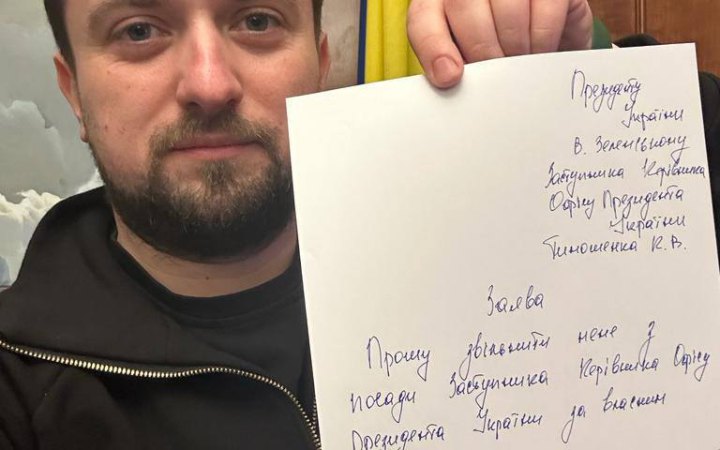 Президенту
України
В. Зеленському
Заступника Керівника
Офісу Президента
України
Тимошенка К.В.
Заява
Прошу звільнити мене з
посади Заступника Керівника Офісу
Президента України за власним